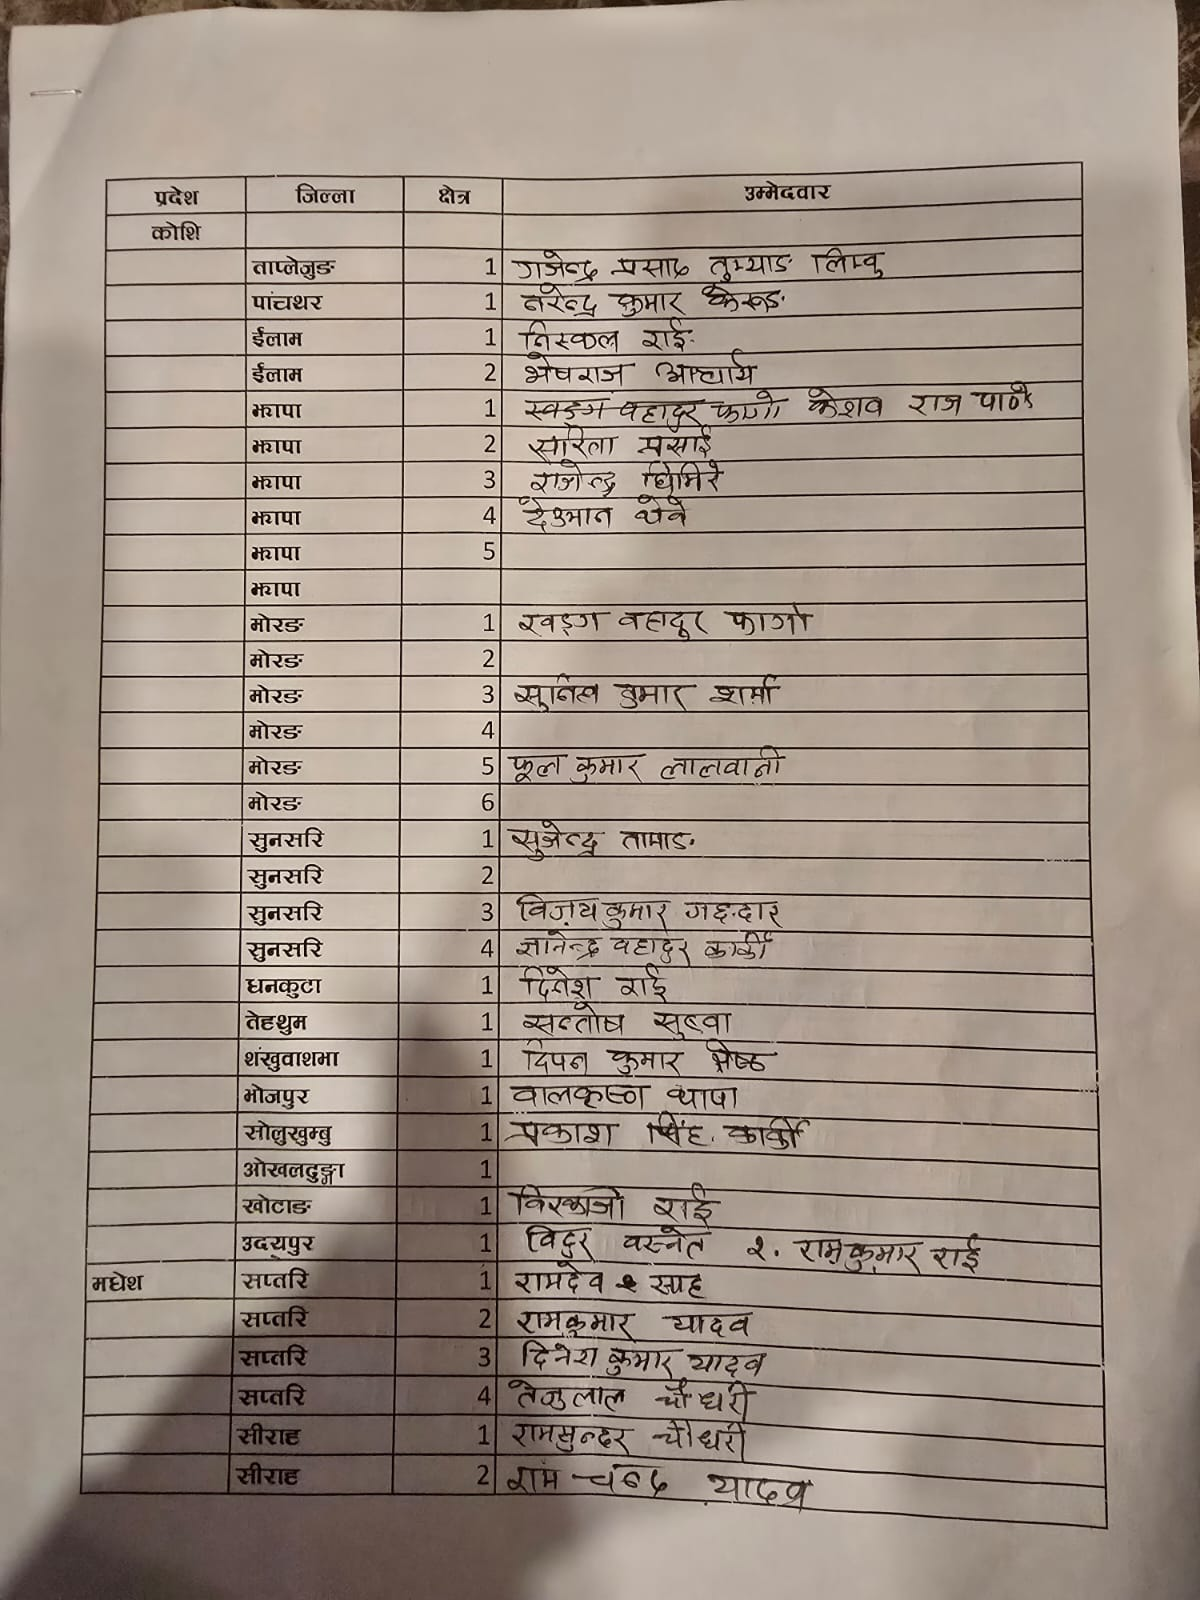 प्रदेश जिल्ला क्षेत्र उम्मेदवार
कोशि
ताप्लेजुङ 1 गजेन्द्र प्रसाद तुम्याङ लिम्बु
पांचथर 1 नरेन्द्र कुमार केरुङ
ईलाम 1 निस्कल राई
ईलाम 2 भेषराज आचार्य
झापा 1 खड्ग बहादुर फागो केशव राज पाण्डे
झापा 2 सरिता प्रसाई
झापा 3 राजेन्द्र घिमिरे
झापा 4 देउमान थेबे
झापा 5
झापा
मोरङ 1 खड्ग वहादूर फागो
मोरङ 2
मोरङ 3 सुनिल कुमार शर्मा
मोरङ 4
मोरङ 5 फूल कुमार लालवानी
मोरङ 6
सुनसरि 1 सुजेन्द्र तामाङ
सुनसरि 2
सुनसरि 3 विजय कुमार
सुनसरि 4 ज्ञानेन्द्र वहादुर कार्की
धनकुटा 1 दिनेश राई
तेह्रथुम 1 सन्तोष सुब्बा
शंखुवाशभा 1 दिपन कुमार श्रेष्ठ
भोजपुर 1 वालकृष्ण थापा
सोलुखुम्बु 1 प्रकाश सिंह कार्की
ओखलढुङ्गा 1
खोटाङ 1 राई
उदयपुर 1 विदुर वस्नेत २. रामकुमार राई
मधेश सप्तरि 1 रामदेव साह
सप्तरि 2 रामकुमार यादव
सप्तरि 3 दिनेश कुमार यादव
सप्तरि 4 तेजुलाल चौधरी
सीराह 1 रामसुन्दर चौधरी
सीराह 2 राम चन्द्र यादव